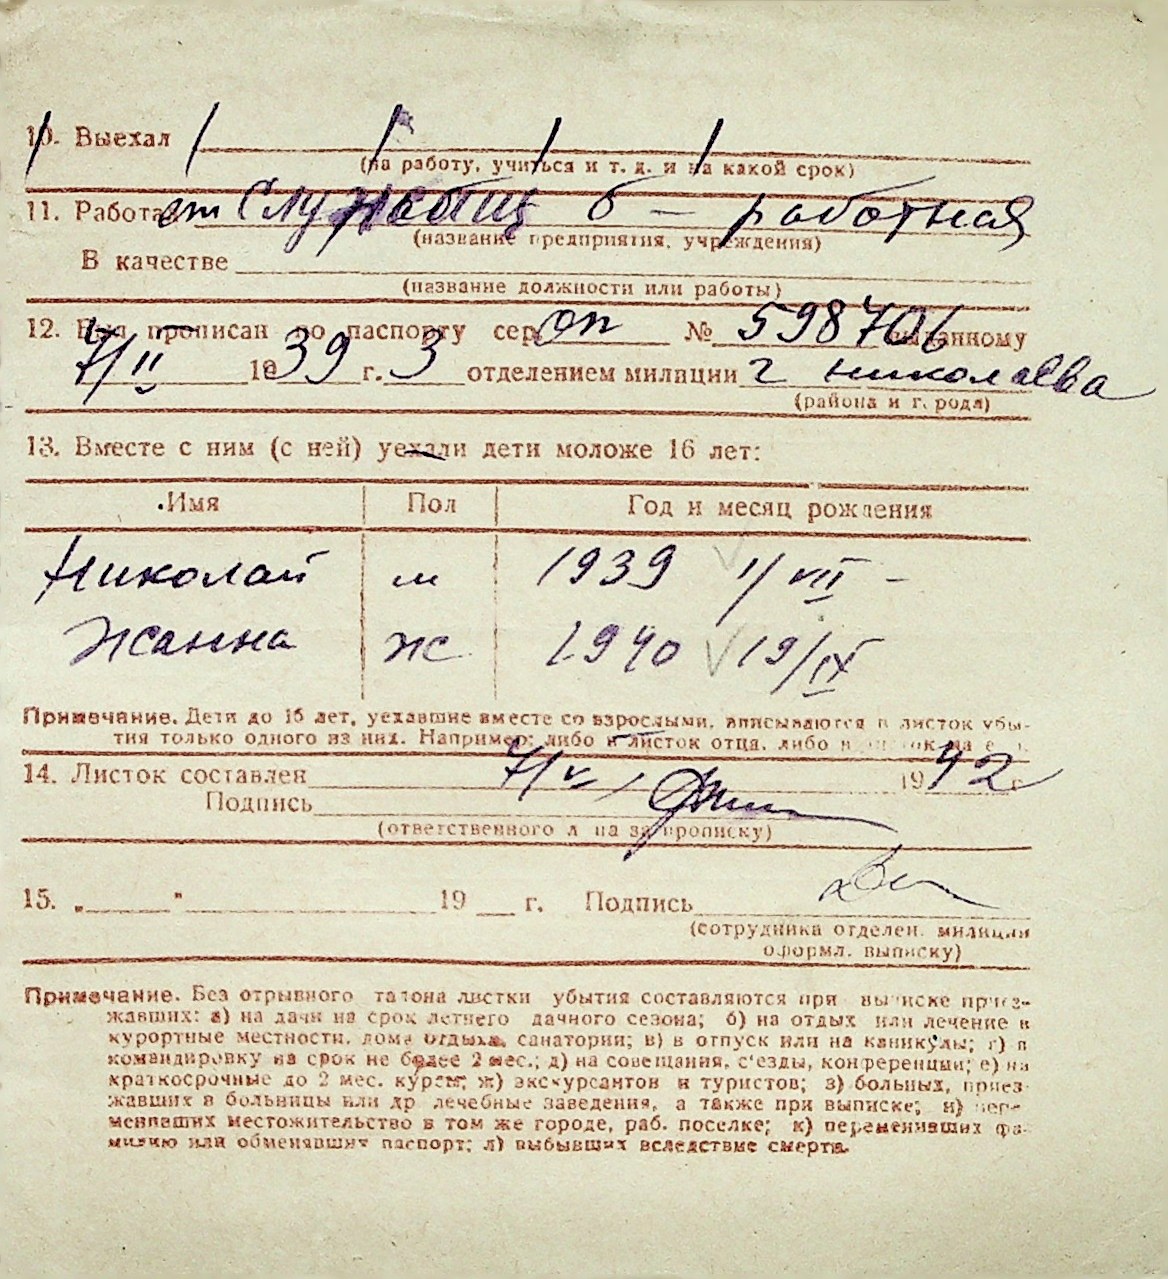 10. Выехал
(на работу, учиться и т. д. и на какой срок)
11. Работа ет Служебищ б – работная
(название предприятия, учреждения)
В качестве
(название должности или работы)
12. Был прописан по паспорту сер. ОП № 598706 выданному
7/II 1939 г. 3 отделением милиции г Николаева
(района и города)
13. Вместе с ним (с ней) уехали дети моложе 16 лет:
Имя Пол Год и месяц рождения
Николай м 1939 1/VII –
Жанна ж 1940 19/IX
Примечание. Дети до 16 лет, уехавшие вместе со взрослыми, вписываются в листок убы-
тия только одного из них. Например: либо в листок отца, либо в листок матери.
14. Листок составлен 7/V 1942 г.
Подпись
(ответственного лица за прописку)
15. „ " 19 г. Подпись
(сотрудника отделен. милиции
оформл. выписку)
Примечание. Без отрывного талона листки убытия составляются при выписке приез-
жавших: а) на дачи на срок летнего дачного сезона; б) на отдых или лечение в
курортные местности, дома отдыха, санатории; в) в отпуск или на каникулы; г) в
командировку на срок не более 2 мес.; д) на совещания, с'езды, конференции; е) на
краткосрочные до 2 мес. курсы; ж) экскурсантов и туристов; з) больных, приез-
жавших в больницы или др лечебные заведения, а также при выписке; и) пере-
менивших местожительство в том же городе, раб. поселке; к) переменивших фа-
милию или обменявших паспорт; л) выбывших вследствие смерти.